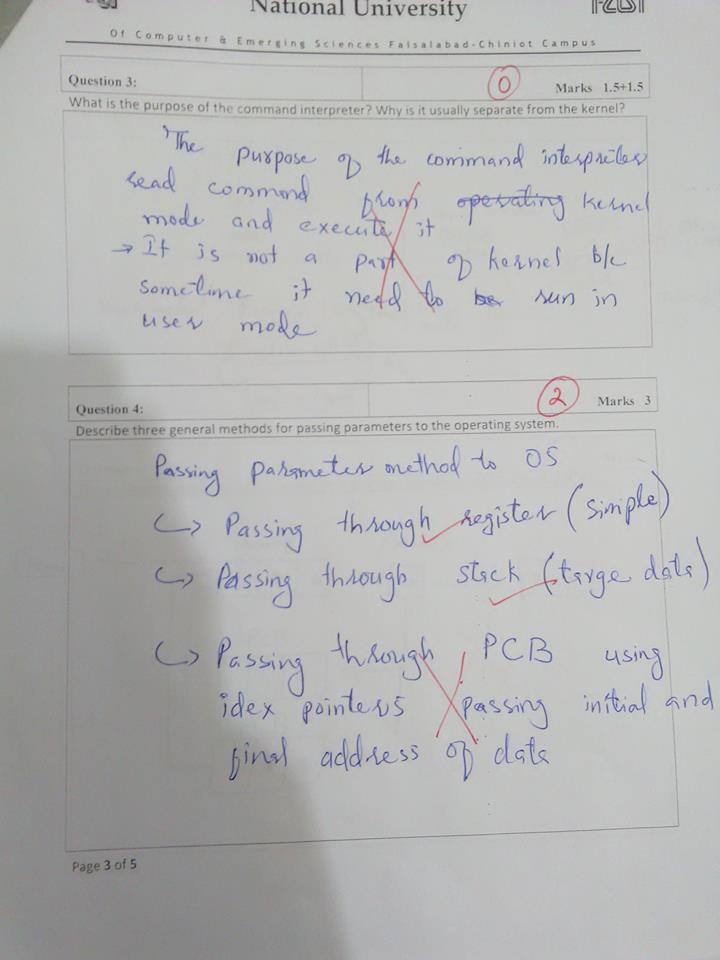 National University
Of Computer & Emerging Sciences Faisalabad-Chiniot Campus
Question 3:
0
Marks 1.5+1.5
What is the purpose of the command interpreter? Why is it usually separate from the kernel?
The purpose of the command interpreter
read command from operating kernel
mode and execute it
→ It is not a part of kernel b/c
sometime it need to be run in
user mode
Question 4:
2
Marks 3
Describe three general methods for passing parameters to the operating system.
Passing parameter method to OS
↪ Passing through register (simple)
↪ Passing through stack (large data)
↪ Passing through PCB using
idex pointers passing initial and
final address of data
Page 3 of 5